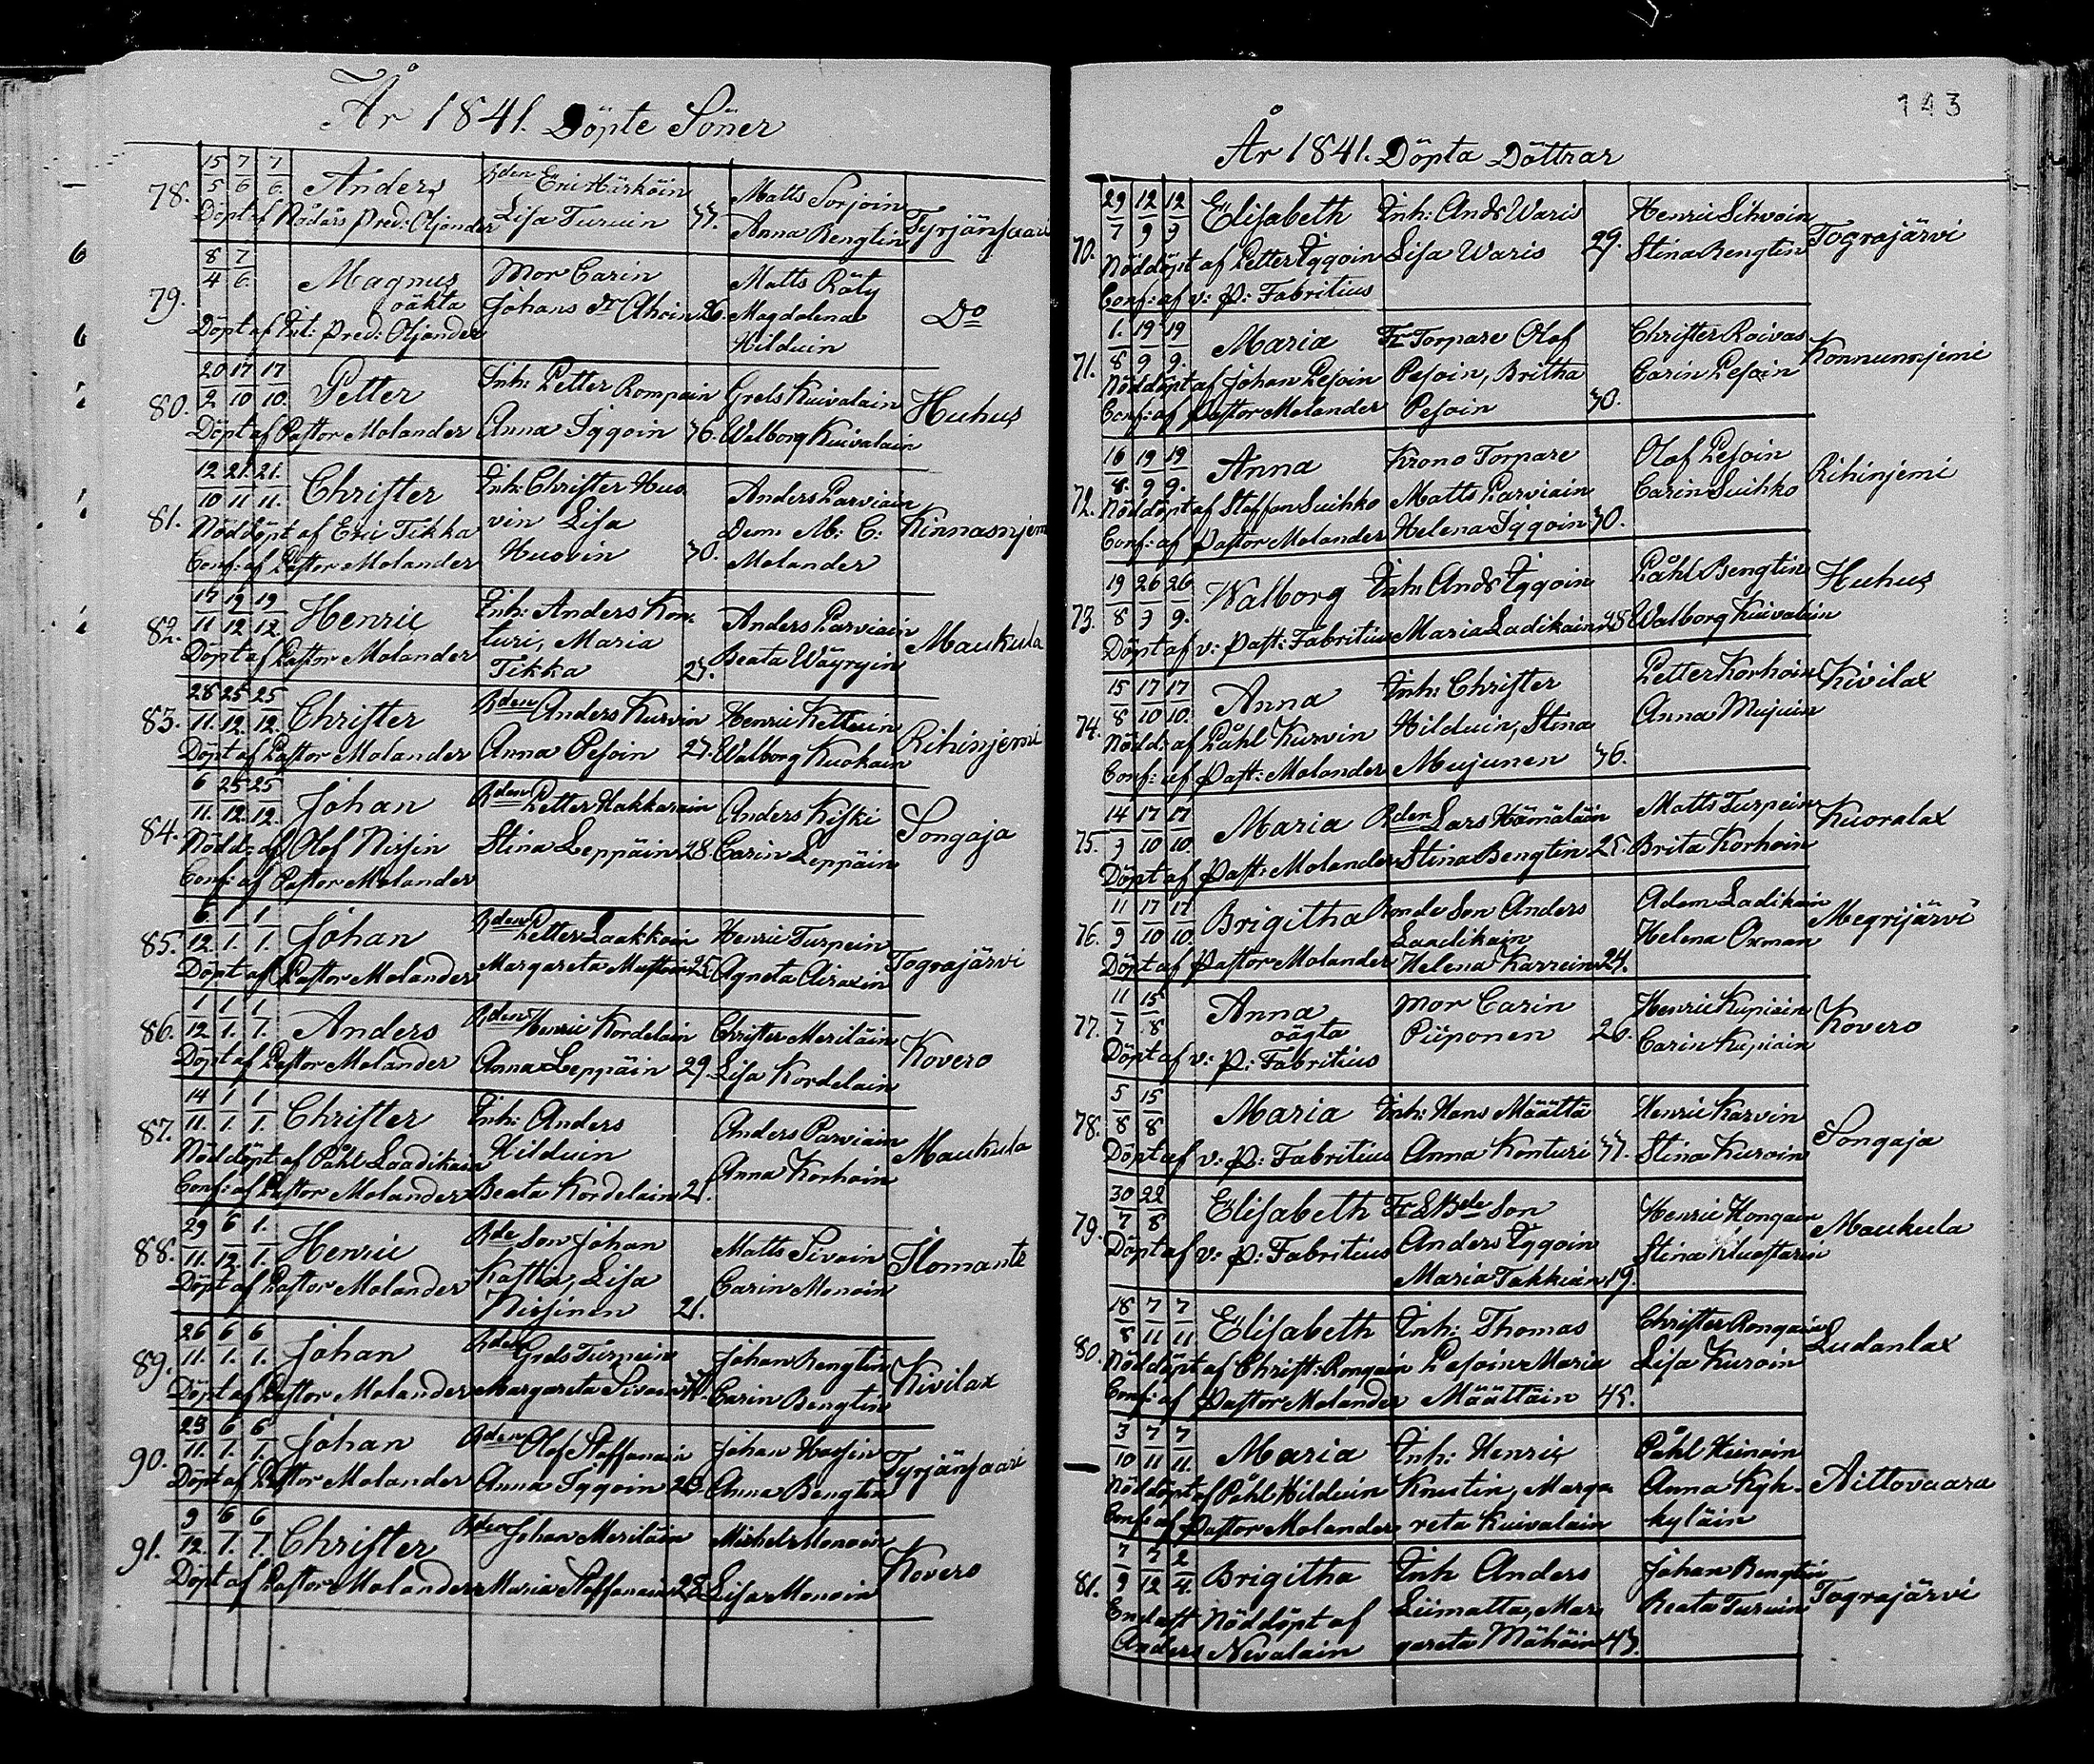 År 1841. Döpte Söner
78.
15/5 7/6 7/6.
Anders
Bden Eric Härköin
Lisa Turuin 33.
Matts Sorjoin
Anna Bengtin
Tyrjänsaari
Döpt af Nådårs Pred: Ojander
79.
8/4 7/6.
Magnus
oäkta
Mor Carin
Johans dr Ahoin 26.
Matts Räty
Magdalena
Hilduin
Do
Döpt af Ext: Pred: Ojander
80.
20/2 17/10 17/10.
Petter
Inh: Petter Rompain
Anna Iggoin 36.
Grels Kuivalain
Walborg Kuivalain
Huhus
Döpt af Pastor Molander
81.
12/10 21./11 21./11.
Christer
Inh: Christer Huo
vin Lisa
Huovin 30.
Anders Parviain
Dem: M: C:
Molander
Kinnasnjemi
Nöddöpt af Eric Tikka
Conf: af Pastor Molander
82.
17/11 19/12 19/12.
Henric
Inh: Anders Kon
turi, Maria
Tikka 27.
Anders Parviain
Beata Wäyryin
Maukula
Döpt af Pastor Molander
83.
28/11. 25/12. 25/12.
Christer
Bden Anders Kurvin
Anna Pesoin 27.
Henric Kettuin
Walborg Kuokain
Rihinjemi
Döpt af Pastor Molander
84.
6/11. 25/12. 25/12.
Johan
Bden Petter Hakkarain
Stina Leppäin 28.
Anders Kiski
Carin Leppäin
Songaja
Nödd: af Olof Nissin
Conf: af Pastor Molander
85.
6/12. 1/1. 1/1.
Johan
Bden Petter Laakkoin
Margareta Mustoin 25.
Henric Turpein
Agneta Airaxin
Tograjärvi
Döpt af Pastor Molander
86.
1/12 1/1. 1/1.
Anders
Bden Henric Kordelain
Anna Leppäin 29.
Christer Meriläin
Lisa Kordelain
Kovero
Döpt af Pastor Molander
87.
14/11. 1/1. 1/1.
Christer
Inh: Anders
Hilduin
Beata Kordelain 21.
Anders Parviain
Anna Korhoin
Maukula
Nöddöpt af Påhl Laadikain
Conf: af Pastor Molander
88.
29/11. 6/12. 1./1.
Henric
Bde Son Johan
Kattin, Lisa
Nissinen 21.
Matts Sivoin
Carin Monoin
Ilomants
Döpt af Pastor Molander
89.
26/11. 6/1. 6/1.
Johan
Bden Grels Turpein
Margareta Sivoin
Johan Bengtin
Carin Bengtin
Kivilax
Döpt af Pastor Molander
90.
23/11. 6/1. 6/1.
Johan
Bden Olof Stoffanain
Anna Iggoin 23.
Johan Hassin
Anna Bengtin
Tyrjänsaari
Döpt af Pastor Molander
91.
9/12. 6/1. 6/1.
Christer
Bden Johan Meriläin
Maria Stoffanain 28.
Michel Monoin
Lisa Monoin
Kovero
Döpt af Pastor Molander
143
År 1841. Döpta Döttrar
70.
29/7 12/9 12/9
Elisabeth
Inh: Ands Waris
Lisa Waris 29.
Henric Sihvoin
Stina Bengtin
Tograjärvi
Nöddöpt af Petter Iggoin
Conf: af v: P: Fabritius
71.
1./8 19/9 19/9.
Maria
Fr Torpare Olof
Pesoin, Britha
Pesoin 30.
Christer Raivas
Carin Pesoin
Konnunnjemi
Nöddöpt af Johan Pesoin
Conf: af Pastor Molander
72.
16/8. 19/9 19/9.
Anna
Krono Torpare
Matts Parviain
Helena Iggoin 30.
Olof Pesoin
Carin Suihko
Rihinjemi
Nöddöpt af Staffan Suihko
Conf: af Pastor Molander
73.
19/8 26/9 26/9.
Walborg
Inh: Ands Iggoin
Maria Ladikain 28
Påhl Bengtin
Walborg Kuivalain
Huhus
Döpt af v: Past: Fabritius
74.
15/8 17/10 17/10.
Anna
Inh: Christer
Hilduin, Stina
Mujunen 36.
Petter Korhoin
Anna Mujuin
Kivilax
Nödd: af Påhl Kurvin
Conf: af Past: Molander
75.
14/9 17/10 17/10.
Maria
Bden Lars Hämäläin
Stina Bengtin 25.
Matts Turpein
Brita Korhoin
Kuoralax
Döpt af Past: Molander
76.
11/9 17/10 17/10.
Brigitha
Bonde Son Anders
Laadikain
Helena Karvein 24.
Adam Ladikain
Helena Oxman
Megrijärvi
Döpt af Pastor Molander
77.
11/7 15/8
Anna
oägta
Mor Carin
Piiponen 26.
Henric Kupiain
Carin Kupiain
Kovero
Döpt af v: P: Fabritius
78.
5/8 15/8
Maria
Inh: Hans Määttä
Anna Konturi 33.
Henric Karvin
Stina Kuroin
Songaja
Döpt af v: P: Fabritius
79.
30/7 22/8
Elisabeth
Bde Son
Anders Iggoin
Maria Takkuin 19.
Henric Hongain
Stina
Maukula
Döpt af v: P: Fabritius
80.
18/8 7/11 7/11
Elisabeth
Inh: Thomas
Pesoin Maria
Määttäin 45.
Christer Rongain
Lisa Kuroin
Ludanlax
Nöddöpt af Christ: Rongain
Conf: af Pastor Molander
3/10 7/11 7/11.
Maria
Inh: Henric
Knutin, Marga
reta Kuivalain
Påhl Heinoin
Anna Kyh-
kyläin
Aittovaara
Nöddöpt af Påhl Hilduin
Conf: af Pastor Molander
81.
7/9 7/12 2/4.
Brigitha
Inh Anders
Liimatta, Mar
gareta Mähöin 43.
Johan Bengtin
Beata Turuin
Tograjärvi
Endast Nöddöpt af
Anders Nevalain